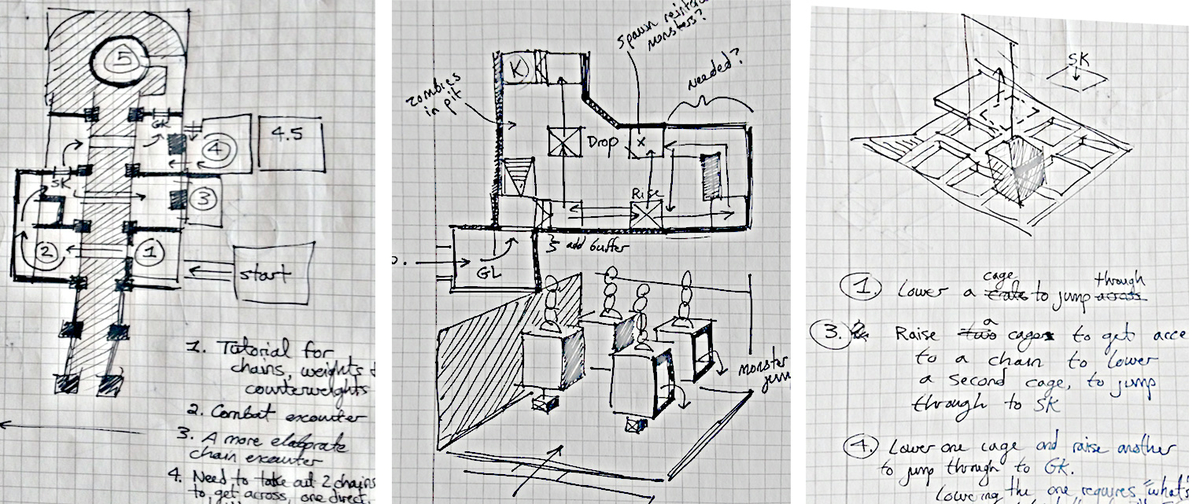 5
GK
4
4.5
SK
3
2
1
start
1. Tutorial for
chains, weights &
counterweights
2. Combat encounter
3. A more elaborate
chain encounter
4. Need to take out 2 chains
to get across, one direct.
spawn
monsters?
needed?
K
zombies
in pit
Drop
x
Rise
add buffer
GL
monster
SK
1 Lower a crate cage to jump across through
3. 2. Raise two a cages to get acce
to a chain to lower
a second cage, to jump
through to SK
4. Lower one cage and raise another
to jump through to GK.
Lowering the one requires "what's